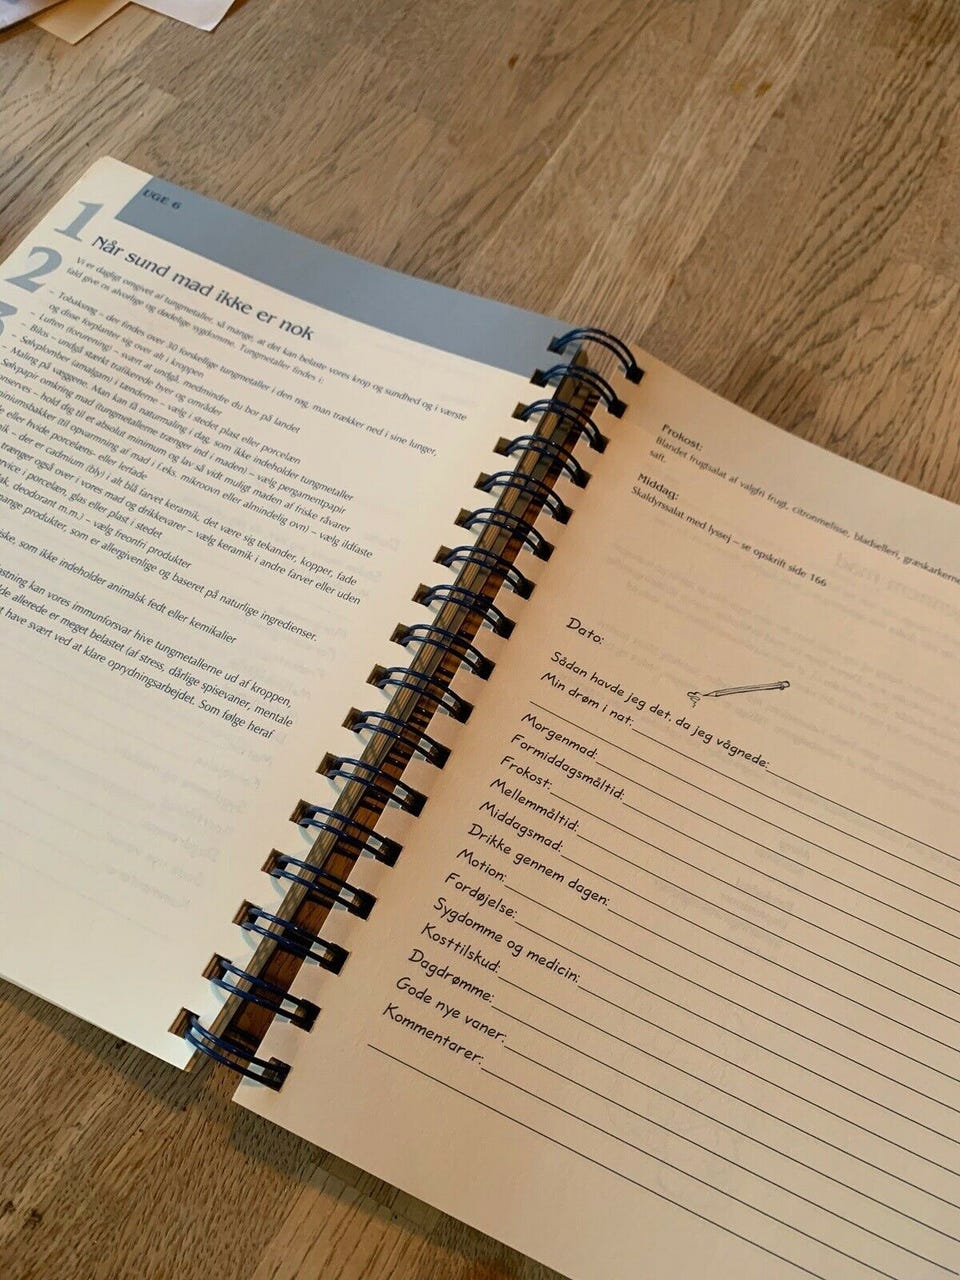 UGE 6
1
2
3
Når sund mad ikke er nok
Vi er dagligt omgivet af tungmetaller, så mange, at det kan belaste vores krop og sundhed og i værste
fald give os alvorlige og dødelige sygdomme. Tungmetaller findes i:
- Tobaksrøg – der findes over 30 forskellige tungmetaller i den røg, man trækker ned i sine lunger,
og disse forplanter sig over alt i kroppen
- Luften (forurening) – svært at undgå, medmindre du bor på landet
- Bilos – undgå stærkt trafikerede byer og områder
- Sølvplomber (amalgam) i tænderne – vælg i stedet plast eller porcelæn
Maling på væggene. Man kan få naturmaling i dag, som ikke indeholder tungmetaller
Sølvpapir omkring mad (tungmetallerne trænger ind i maden) – vælg pergamentpapir
onserves – hold dig til et absolut minimum og lav så vidt muligt maden af friske råvarer
miniumsbakker (til opvarmning af mad i f.eks. mikroovn eller almindelig ovn) – vælg ildfaste
de eller hvide porcelæns- eller lerfade
ik – der er cadmium (bly) i alt blå farvet keramik, det være sig tekander, kopper, fade
trænger også over i vores mad og drikkevarer – vælg keramik i andre farver eller uden
rvice i porcelæn, glas eller plast i stedet
ak, deodorant m.m.) – vælg freonfri produkter
mange produkter, som er allergivenlige og baseret på naturlige ingredienser.
iske, som ikke indeholder animalsk fedt eller kemikalier
astning kan vores immunforsvar hive tungmetallerne ud af kroppen,
de allerede er meget belastet (af stress, dårlige spisevaner, mentale
t have svært ved at klare oprydningsarbejdet. Som følge heraf
Frokost:
Blandet frugtsalat af valgfri frugt, citronmelisse, bladselleri, græskarkerne
saft.
Middag:
Skaldyrssalat med lysej – se opskrift side 166
Dato:
Sådan havde jeg det, da jeg vågnede:
Min drøm i nat:
Morgenmad:
Formiddagsmåltid:
Frokost:
Mellemmåltid:
Middagsmad:
Drikke gennem dagen:
Motion:
Fordøjelse:
Sygdomme og medicin:
Kosttilskud:
Dagdrømme:
Gode nye vaner:
Kommentarer: